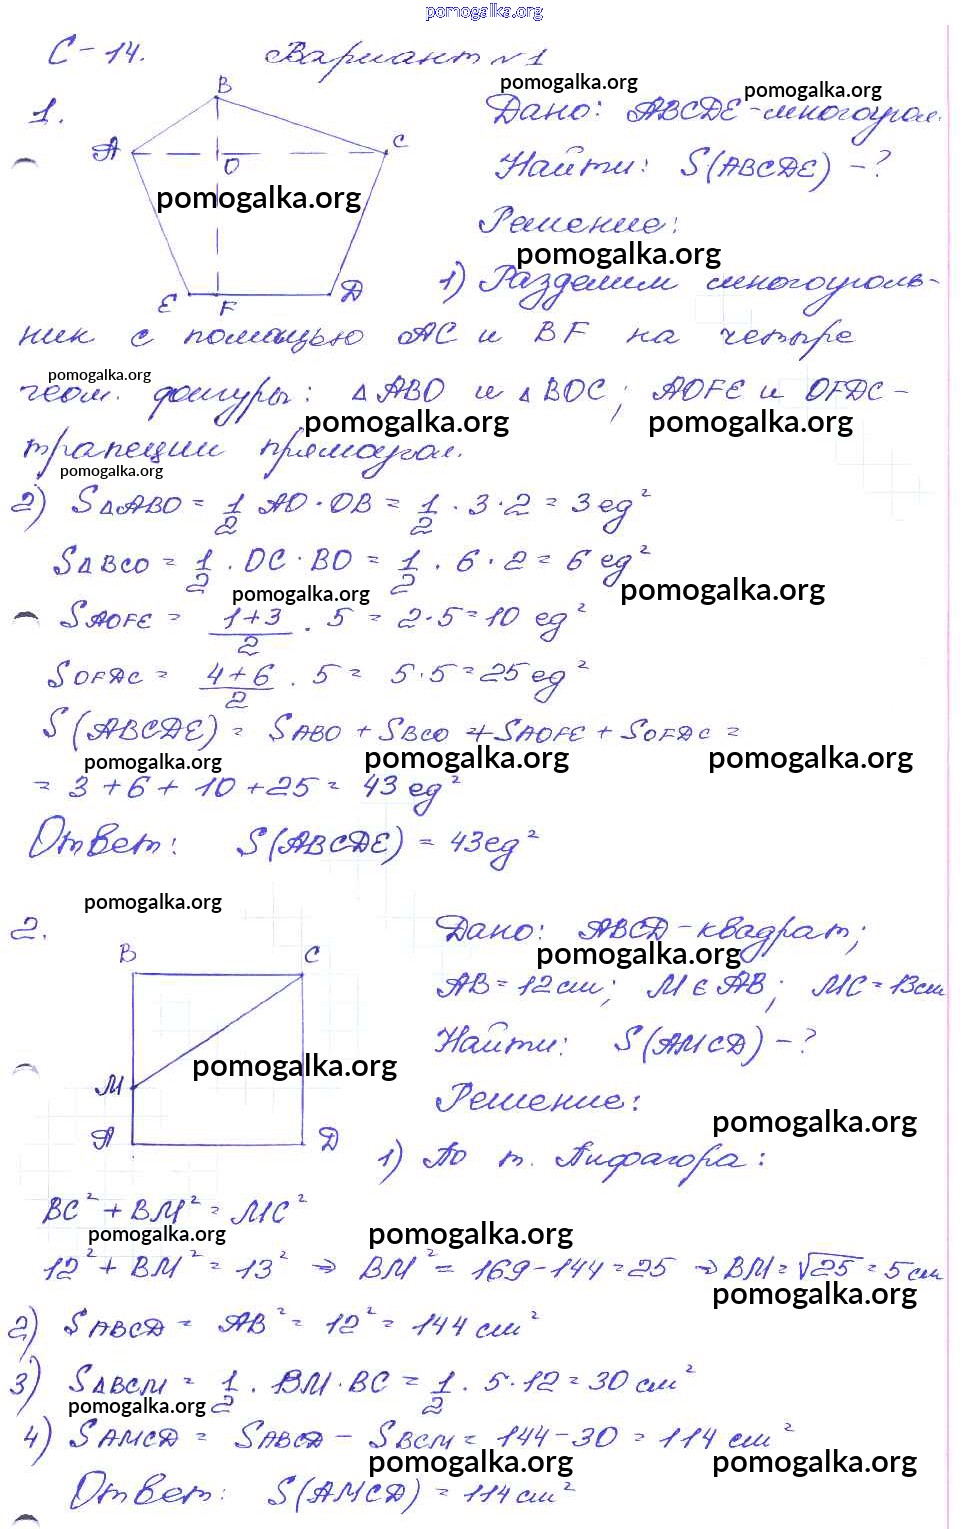 pomogalka.org
С-14. Вариант №1
pomogalka.org pomogalka.org
1. Дано: ABCDE-многоугол.
B
A C
O
Найти: S(ABCDE) -?
pomogalka.org
Решение:
pomogalka.org
1) Разделим многоуголь-
E F D
ник с помощью AC и BF на четыре
pomogalka.org
геом. фигуры: △ABO и △BOC; AOFE и OFDC-
pomogalka.org pomogalka.org
трапеции прямоугол.
pomogalka.org
2) S△ABO = 1/2 AO·OB = 1/2 · 3·2 = 3 ед²
S△BCO = 1/2 · OC·BO = 1/2 · 6·2 = 6 ед²
pomogalka.org pomogalka.org
SAOFE = (1+3)/2 · 5 = 2·5 = 10 ед²
SOFDC = (4+6)/2 · 5 = 5·5 = 25 ед²
S(ABCDE) = SABO + SBCO + SAOFE + SOFDC =
pomogalka.org pomogalka.org pomogalka.org
= 3+6+10+25 = 43 ед²
Ответ: S(ABCDE) = 43 ед²
pomogalka.org
2. Дано: ABCD-квадрат;
pomogalka.org
B C
AB = 12 см; M ∈ AB; MC = 13 см
Найти: S(AMCD) -?
pomogalka.org
M
Решение:
pomogalka.org
A D
1) По т. Пифагора:
BC² + BM² = MC²
pomogalka.org pomogalka.org
12² + BM² = 13² ⇒ BM² = 169-144 = 25 ⇒ BM = √25 = 5 см
pomogalka.org
2) SABCD = AB² = 12² = 144 см²
3) S△BCM = 1/2 · BM·BC = 1/2 · 5·12 = 30 см²
pomogalka.org
4) SAMCD = SABCD - SBCM = 144-30 = 114 см²
pomogalka.org pomogalka.org
Ответ: S(AMCD) = 114 см²